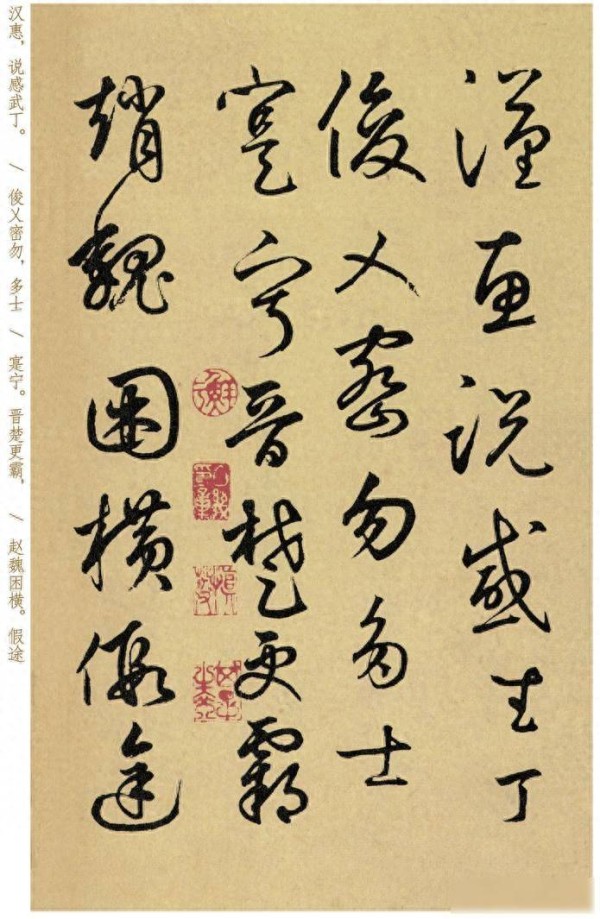 漢惠説感武丁
俊乂密勿多士
寔寧晉楚更霸
趙魏困横假途
汉惠，说感武丁。 / 俊乂密勿，多士 / 寔宁。晋楚更霸， / 赵魏困横。假途